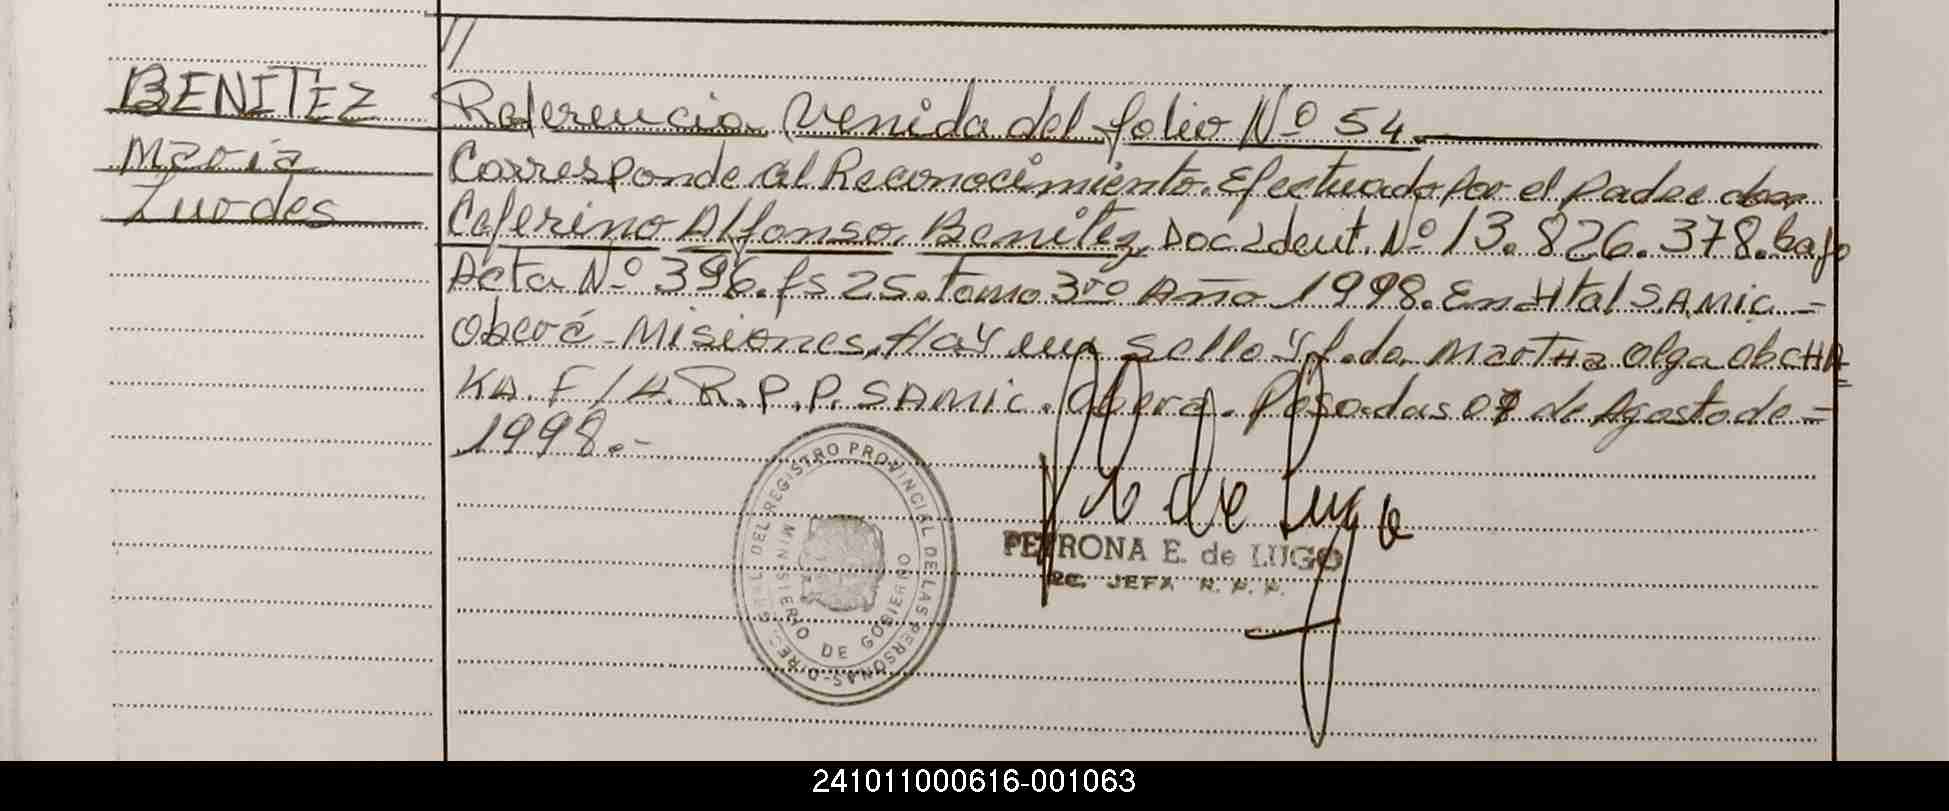 //
BENITEZ
Maria
Lurdes
Referencia venida del folio Nº 54.
Corresponde al Reconocimiento. Efectuado por el padre don
Ceferino Alfonso Benitez, Doc Ident. Nº 13.826.378. bajo
Acta Nº 396. fs 25. tomo 3ro Año 1998. En Htal SAMIC -
Oberá - Misiones. Hay un sello y f.do. Martha Olga ObCHA=
KA. F/A. R.P.P. SAMIC. Oberá. Posadas 07 de Agosto de =
1998.-
P. E. de Lugo
PETRONA E. de LUGO
JEFA R. P. P.
DIREC. GRAL. DEL REGISTRO PROVINCIAL DE LAS PERSONAS
MINISTERIO DE GOBIERNO
241011000616-001063